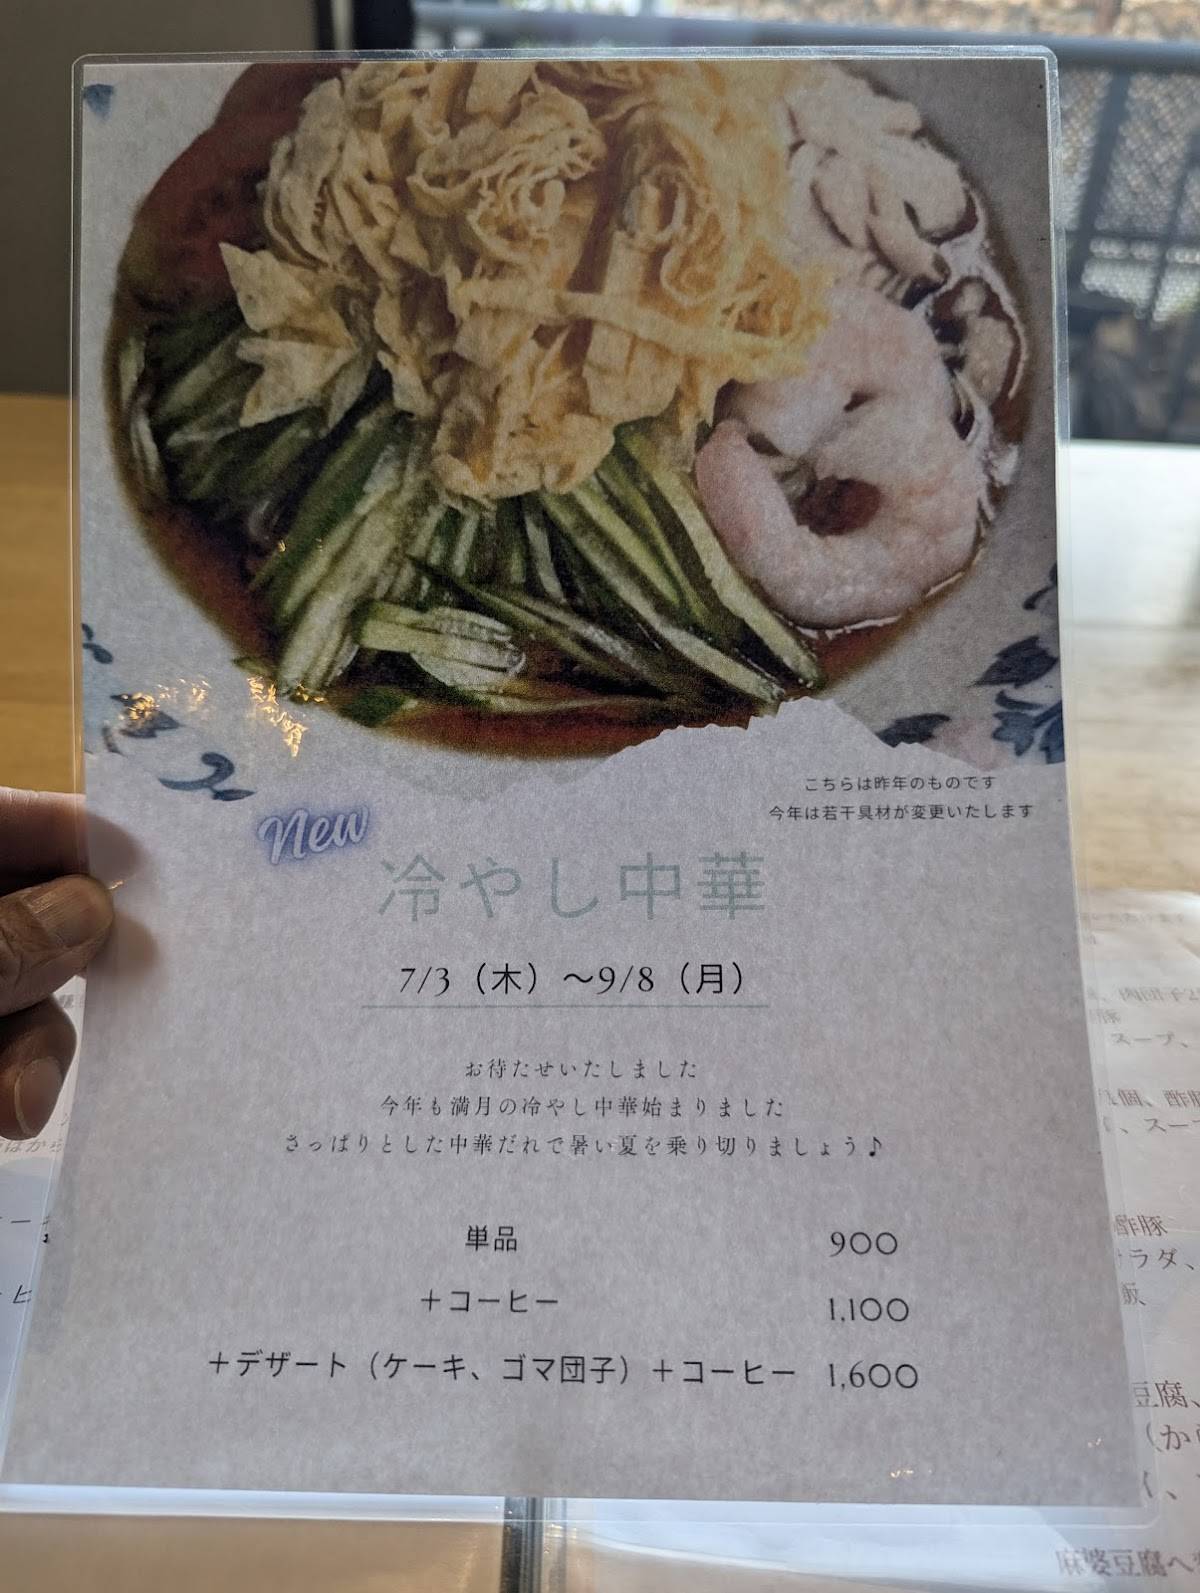 こちらは昨年のものです
今年は若干具材が変更いたします
New
冷やし中華
7/3（木）〜9/8（月）
お待たせいたしました
今年も満月の冷やし中華始まりました
さっぱりとした中華だれで暑い夏を乗り切りましょう♪
単品 900
＋コーヒー 1,100
＋デザート（ケーキ、ゴマ団子）＋コーヒー 1,600
スープ、
酢豚
ラダ、
飯
豆腐、
（か
麻婆豆腐へ